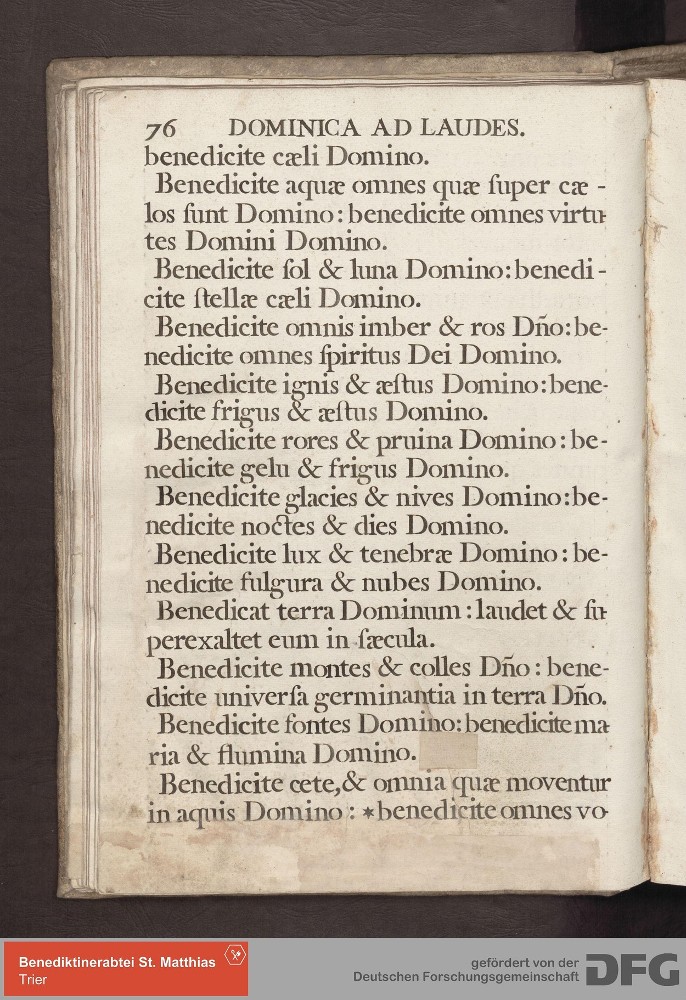 76 DOMINICA AD LAUDES.
benedicite cæli Domino.
Benedicite aquæ omnes quæ ſuper cæ -
los ſunt Domino: benedicite omnes virtu-
tes Domini Domino.
Benedicite ſol & luna Domino: benedi -
cite ſtellæ cæli Domino.
Benedicite omnis imber & ros Dño: be-
nedicite omnes ſpiritus Dei Domino.
Benedicite ignis & æſtus Domino: bene-
dicite frigus & æſtus Domino.
Benedicite rores & pruina Domino: be-
nedicite gelu & frigus Domino.
Benedicite glacies & nives Domino: be-
nedicite noctes & dies Domino.
Benedicite lux & tenebræ Domino: be-
nedicite fulgura & nubes Domino.
Benedicat terra Dominum: laudet & ſu-
perexaltet eum in ſæcula.
Benedicite montes & colles Dño: bene-
dicite univerſa germinantia in terra Dño.
Benedicite fontes Domino: benedicite ma-
ria & flumina Domino.
Benedicite cete, & omnia quæ moventur
in aquis Domino: *benedicite omnes vo-
Benediktinerabtei St. Matthias
Trier
gefördert von der
Deutschen Forschungsgemeinschaft
DFG